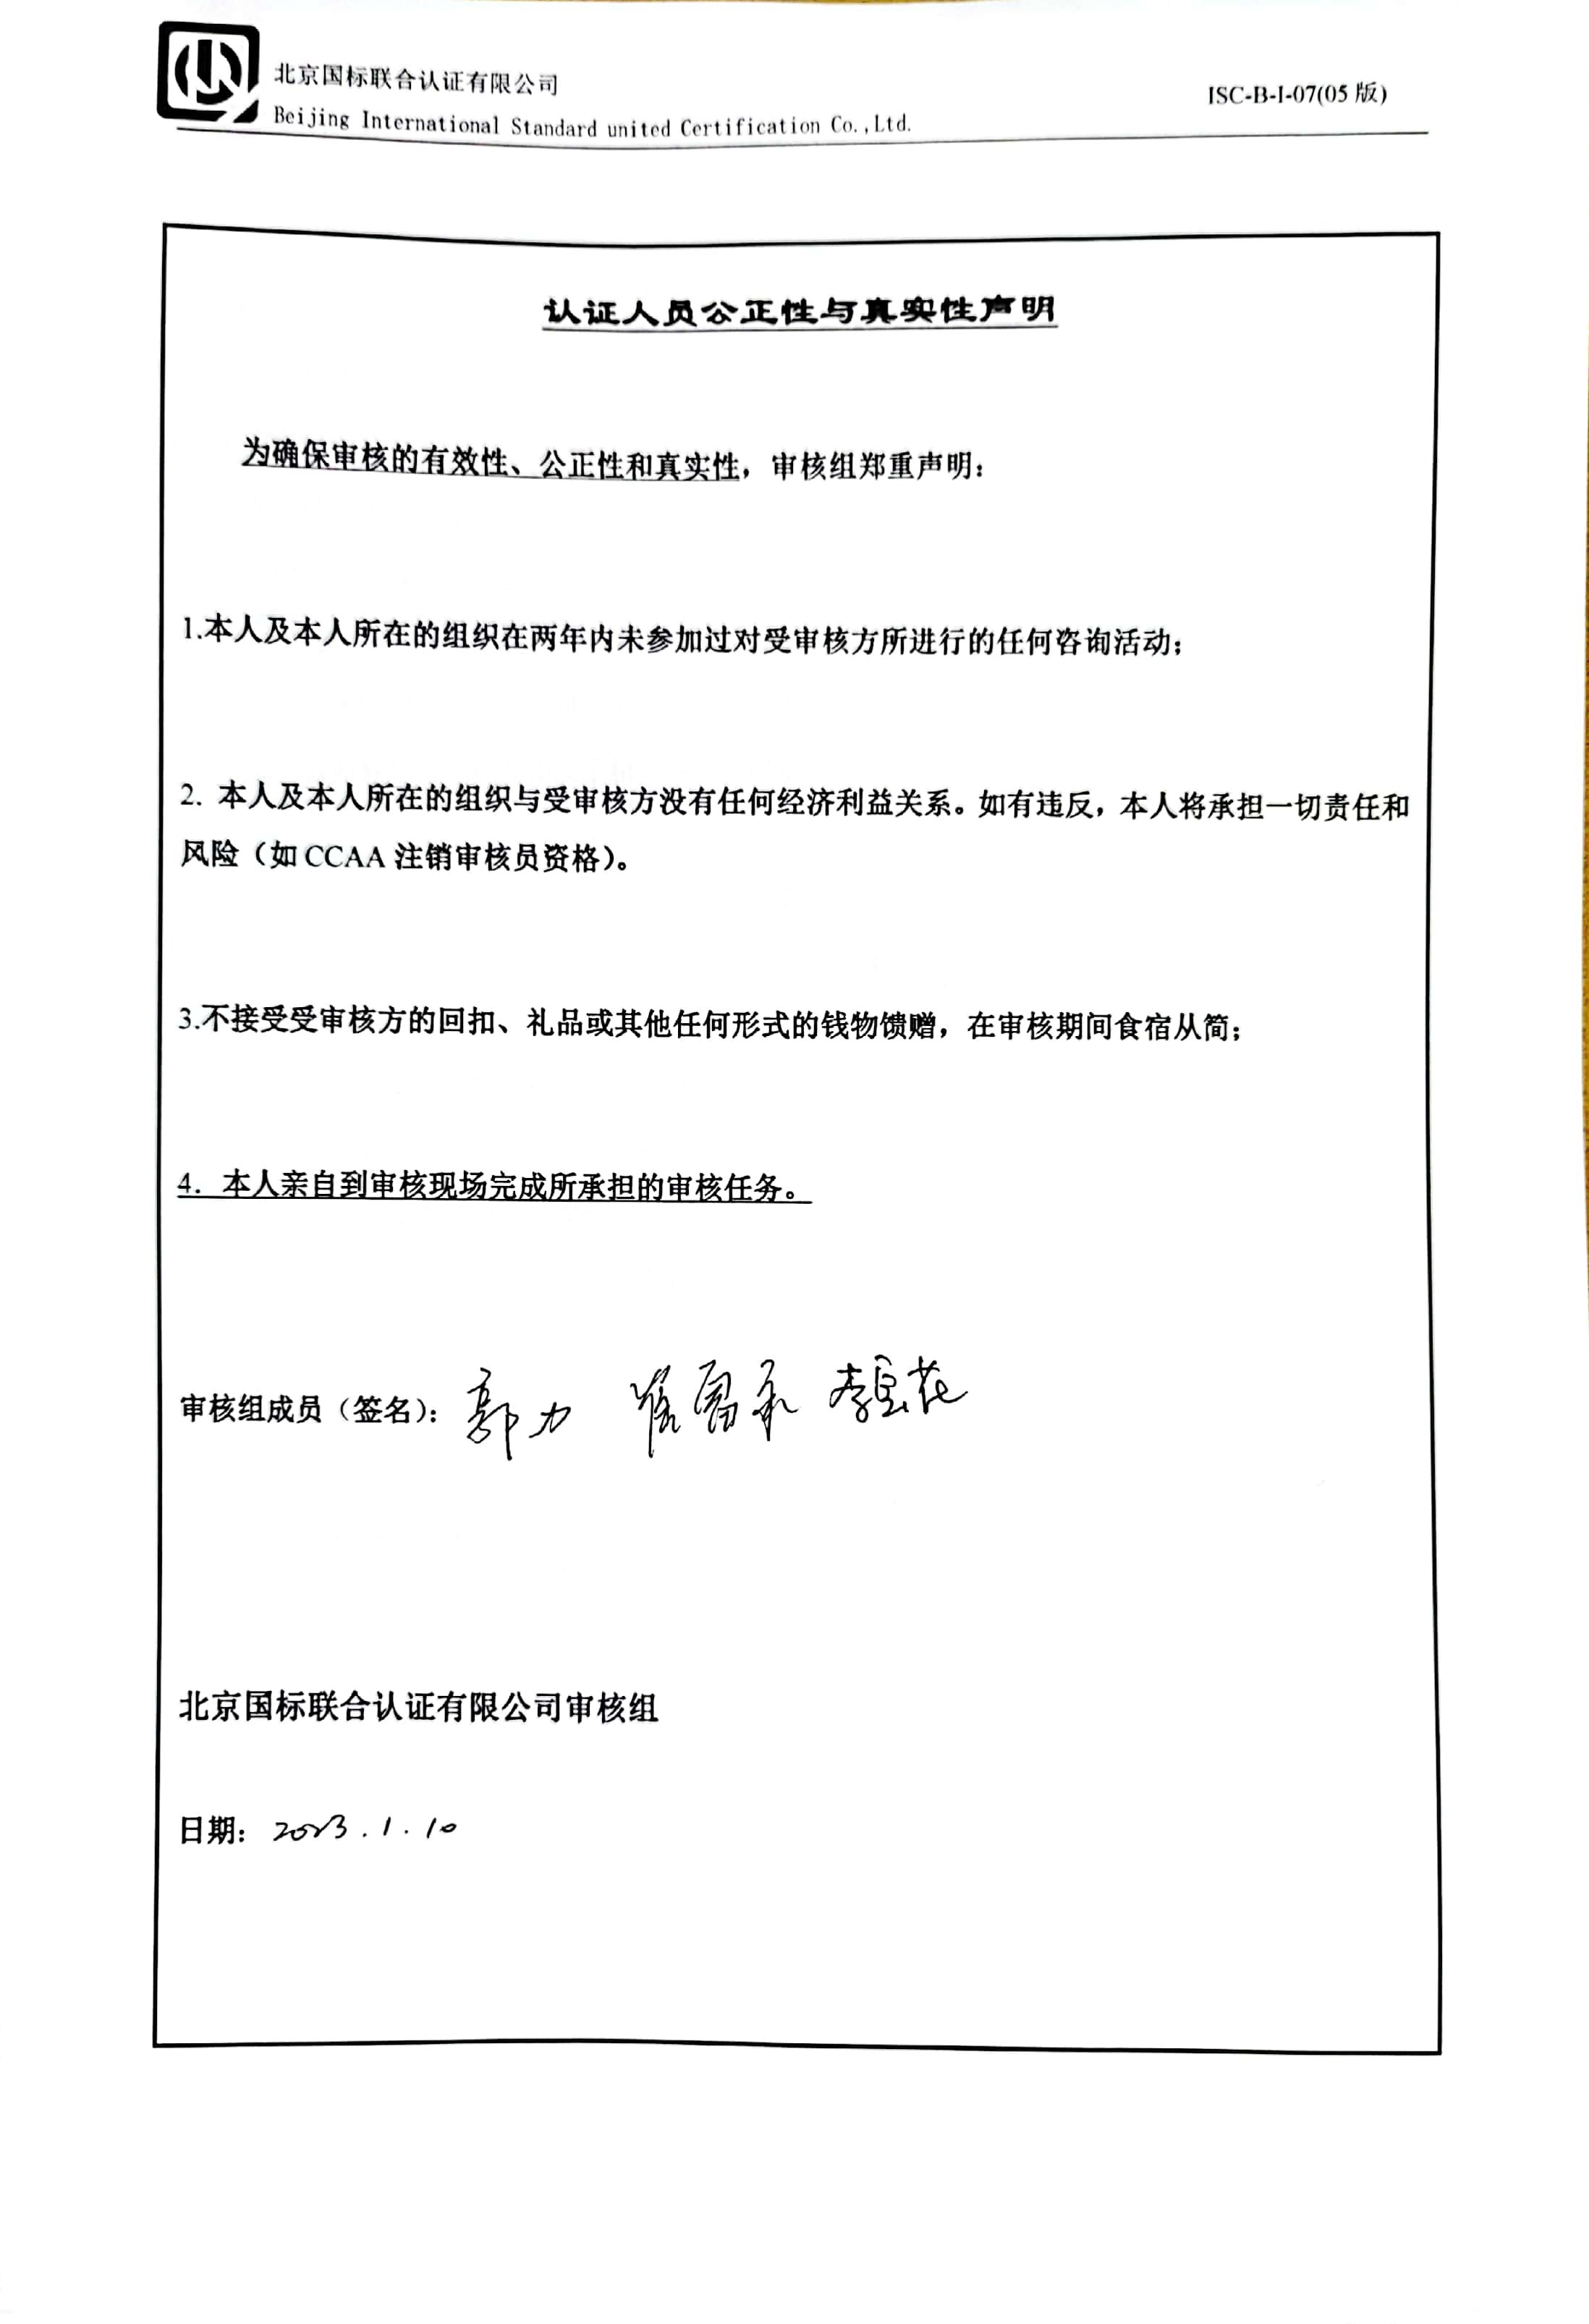 北京国标联合认证有限公司
ISC-B-I-07(05 版)
Beijing International Standard united Certification Co.,Ltd.
认证人员公正性与真实性声明
为确保审核的有效性、公正性和真实性，审核组郑重声明：
1.本人及本人所在的组织在两年内未参加过对受审核方所进行的任何咨询活动；
2. 本人及本人所在的组织与受审核方没有任何经济利益关系。如有违反，本人将承担一切责任和
风险（如 CCAA 注销审核员资格）。
3.不接受受审核方的回扣、礼品或其他任何形式的钱物馈赠，在审核期间食宿从简；
4. 本人亲自到审核现场完成所承担的审核任务。
审核组成员（签名）：郭力
北京国标联合认证有限公司审核组
日期：2023.1.10